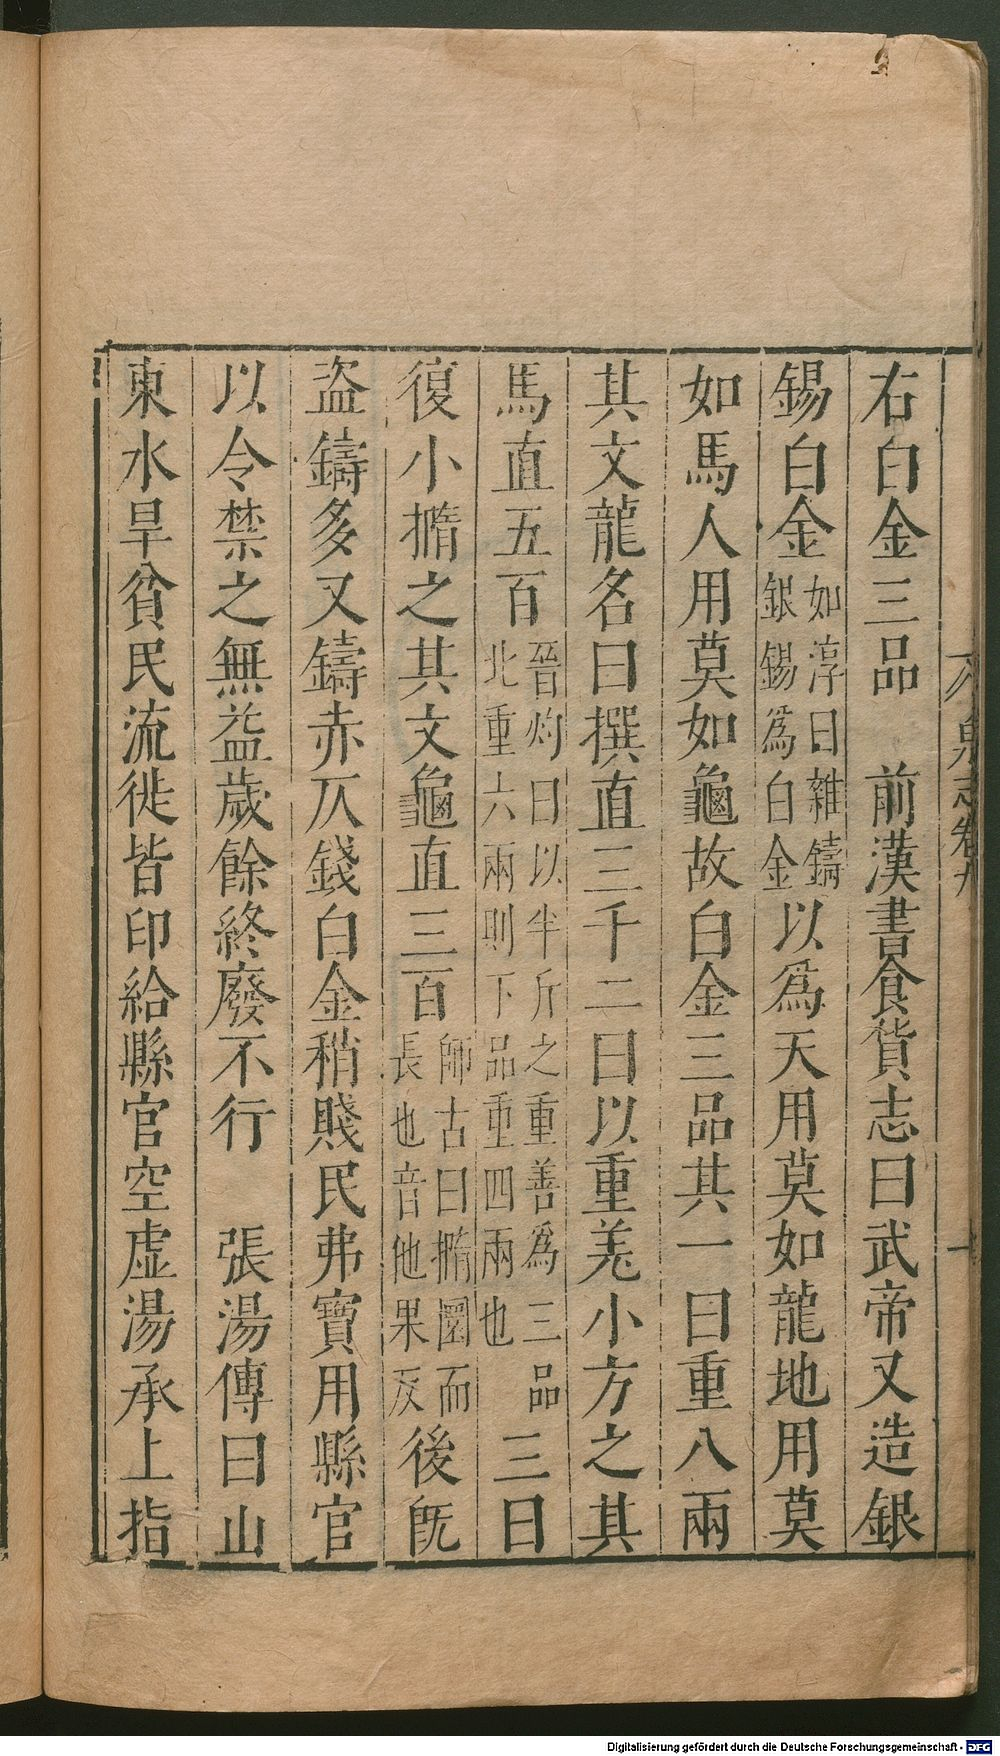 右白金三品　前漢書食貨志曰武帝又造銀
錫白金如淳曰雜鑄銀錫爲白金以爲天用莫如龍地用莫
如馬人用莫如龜故白金三品其一曰重八兩
其文龍名曰撰直三千二曰以重差小方之其
馬直五百晉灼曰以半斤之重善爲三品北重六兩則下品重四兩也三曰
復小撱之其文龜直三百師古曰撱圜而長也音他果反後旣
盜鑄多又鑄赤仄錢白金稍賤民弗寶用縣官
以令禁之無益歲餘終廢不行　張湯傳曰山
東水旱貧民流徙皆卬給縣官空虛湯承上指
泉志卷九
Digitalisierung gefördert durch die Deutsche Forschungsgemeinschaft - DFG